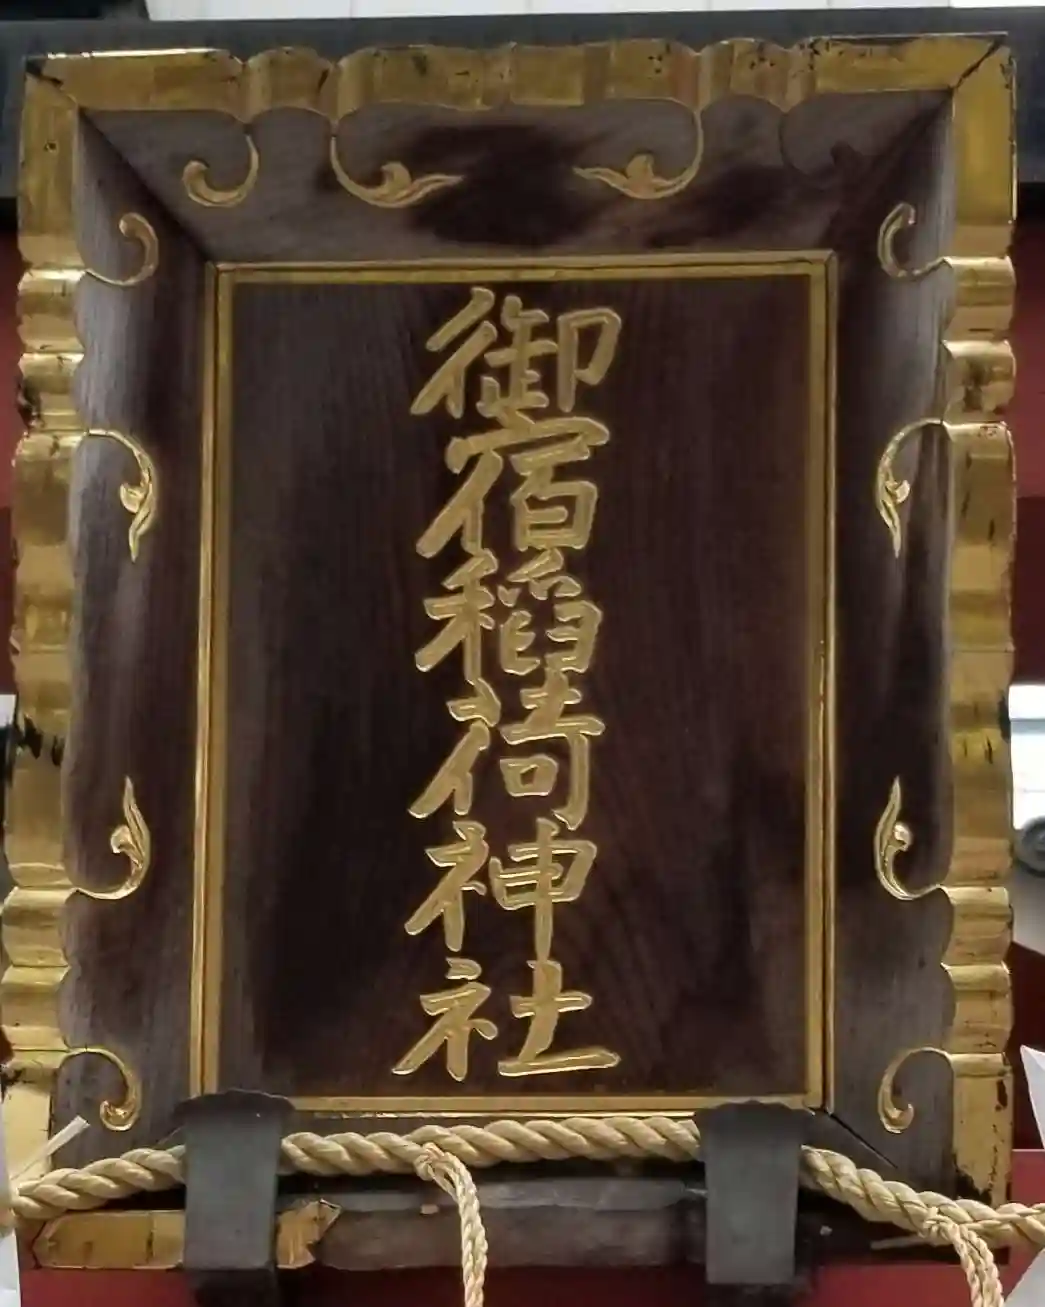 御宿稲荷神社